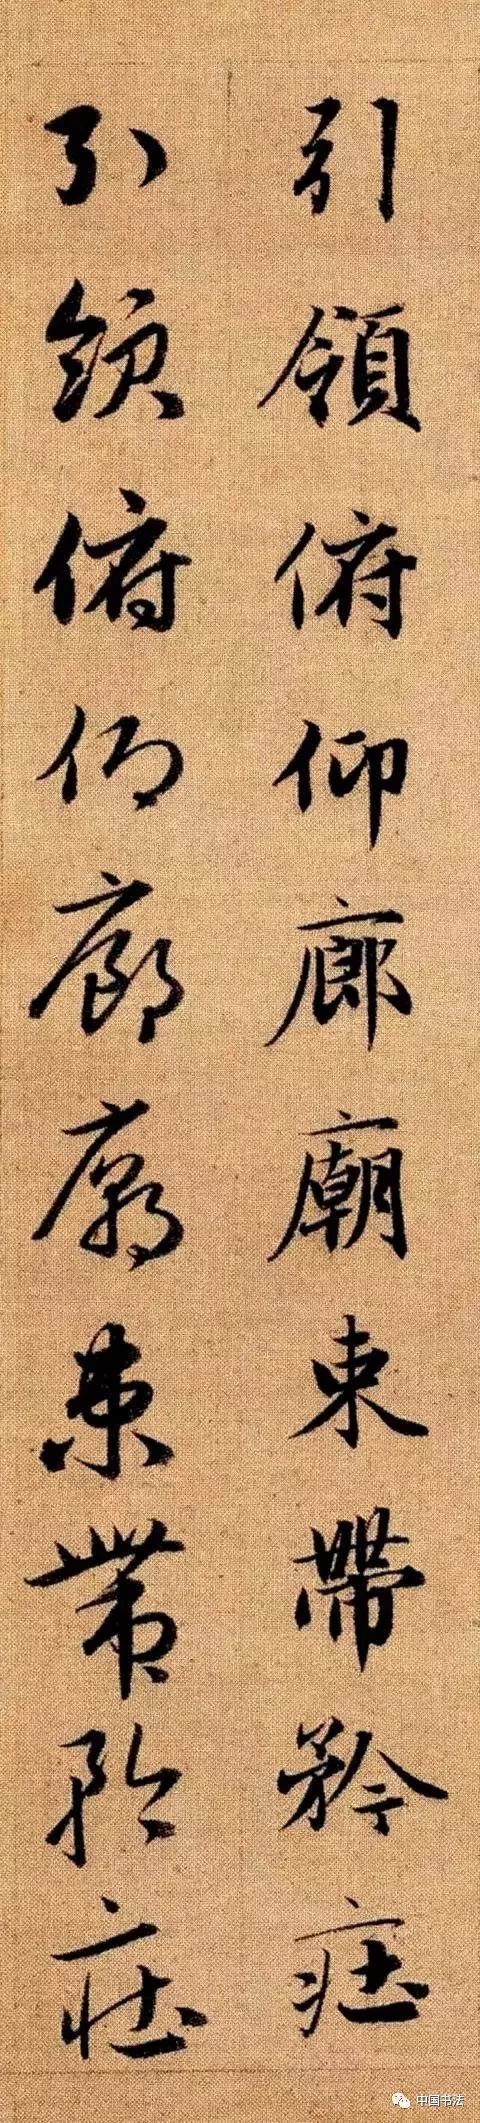 引領俯仰廊廟束帶矜莊
引領俯仰廊廟束帶矜莊
中国书法